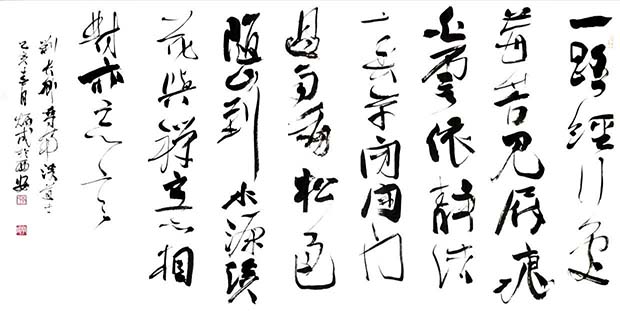 一路經行處
莓苔見屐痕
白雲依靜渚
草閉閑門
過雨看松色
隨山到水源溪
花與禪意相
對亦忘言
劉長卿尋南溪道士
己亥年月於西安